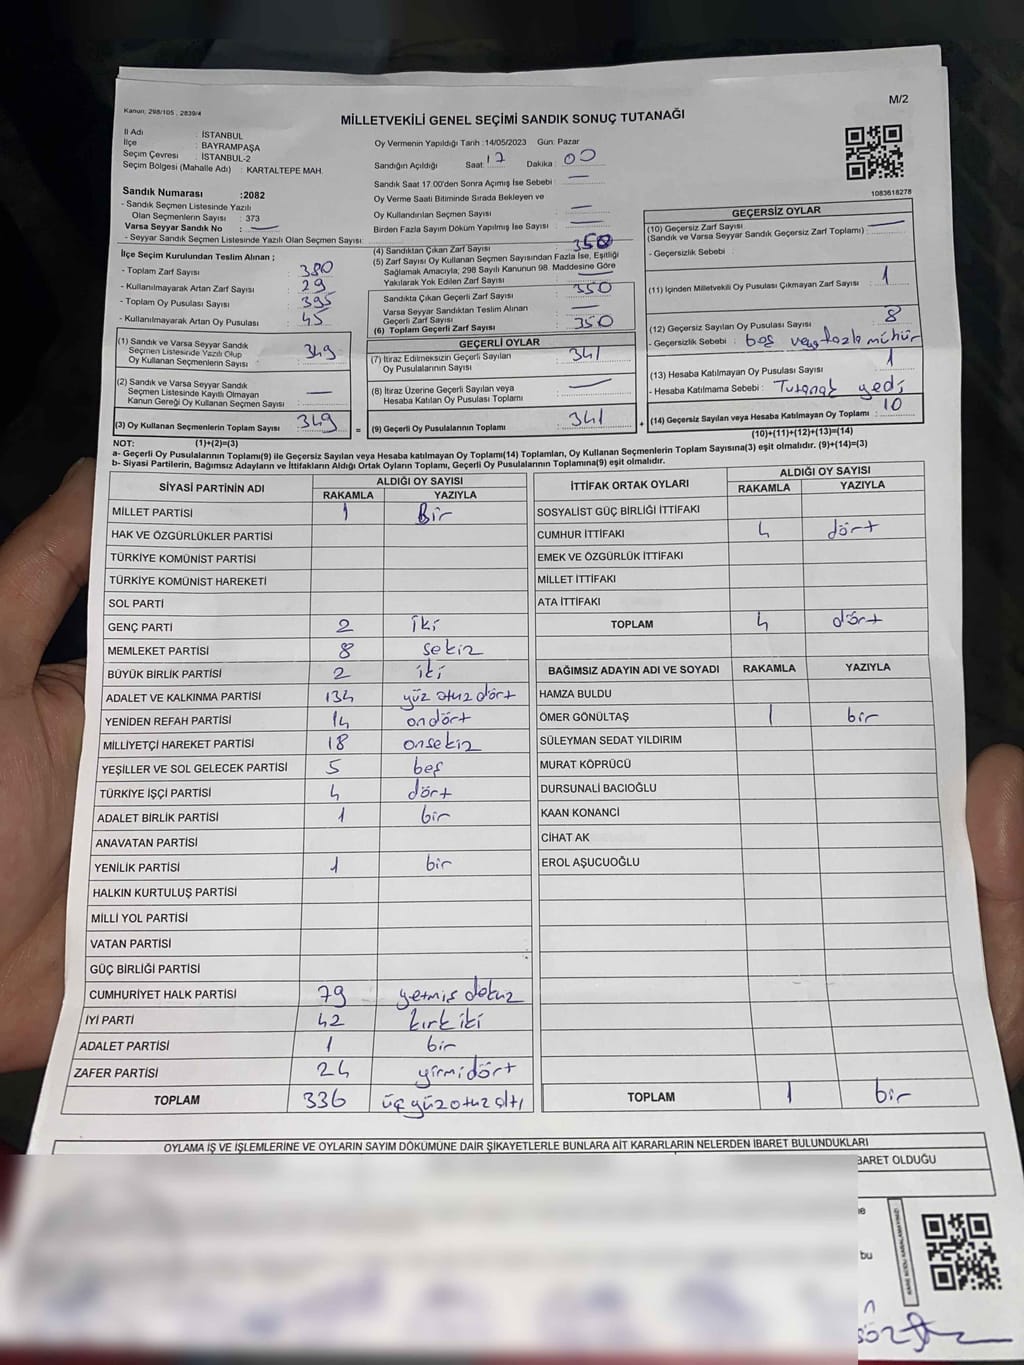 Kanun: 298/105 , 2839/4
M/2
MİLLETVEKİLİ GENEL SEÇİMİ SANDIK SONUÇ TUTANAĞI
İl Adı : İSTANBUL
İlçe : BAYRAMPAŞA
Seçim Çevresi : İSTANBUL-2
Seçim Bölgesi (Mahalle Adı) : KARTALTEPE MAH.
Oy Vermenin Yapıldığı Tarih :14/05/2023 Gün: Pazar
Sandığın Açıldığı Saat: 17 Dakika: 00
Sandık Saat 17.00'den Sonra Açımış İse Sebebi :
Oy Verme Saati Bitiminde Sırada Bekleyen ve
Oy Kullandırılan Seçmen Sayısı
Birden Fazla Sayım Döküm Yapılmış İse Sayısı :
1083618278
Sandık Numarası :2082
- Sandık Seçmen Listesinde Yazılı
Olan Seçmenlerin Sayısı : 373
Varsa Seyyar Sandık No :
- Seyyar Sandık Seçmen Listesinde Yazılı Olan Seçmen Sayısı:
İlçe Seçim Kurulundan Teslim Alınan ;
- Toplam Zarf Sayısı : 380
- Kullanılmayarak Artan Zarf Sayısı : 29
- Toplam Oy Pusulası Sayısı : 395
- Kullanılmayarak Artan Oy Pusulası : 45
(1) Sandık ve Varsa Seyyar Sandık
Seçmen Listesinde Yazılı Olup
Oy Kullanan Seçmenlerin Sayısı : 349
(2) Sandık ve Varsa Seyyar Sandık
Seçmen Listesinde Kayıtlı Olmayan
Kanun Gereği Oy Kullanan Seçmen Sayısı :
(3) Oy Kullanan Seçmenlerin Toplam Sayısı : 349
(4) Sandıktan Çıkan Zarf Sayısı : 350
(5) Zarf Sayısı Oy Kullanan Seçmen Sayısından Fazla İse, Eşitliği
Sağlamak Amacıyla; 298 Sayılı Kanunun 98. Maddesine Göre
Yakılarak Yok Edilen Zarf Sayısı :
Sandıkta Çıkan Geçerli Zarf Sayısı : 350
Varsa Seyyar Sandıktan Teslim Alınan
Geçerli Zarf Sayısı :
(6) Toplam Geçerli Zarf Sayısı : 350
GEÇERLİ OYLAR
(7) İtiraz Edilmeksizin Geçerli Sayılan
Oy Pusulalarının Sayısı : 341
(8) İtiraz Üzerine Geçerli Sayılan veya
Hesaba Katılan Oy Pusulası Toplamı :
= (9) Geçerli Oy Pusulalarının Toplamı : 341
GEÇERSİZ OYLAR
(10) Geçersiz Zarf Sayısı
(Sandık ve Varsa Seyyar Sandık Geçersiz Zarf Toplamı) :
- Geçersizlik Sebebi :
(11) İçinden Milletvekili Oy Pusulası Çıkmayan Zarf Sayısı : 1
(12) Geçersiz Sayılan Oy Pusulası Sayısı : 8
- Geçersizlik Sebebi : boş veya fazla mühür
(13) Hesaba Katılmayan Oy Pusulası Sayısı : 1
- Hesaba Katılmama Sebebi : Tutanak yedi
+ (14) Geçersiz Sayılan veya Hesaba Katılmayan Oy Toplamı : 10
NOT: (1)+(2)=(3) (10)+(11)+(12)+(13)=(14)
a- Geçerli Oy Pusulalarının Toplamı(9) ile Geçersiz Sayılan veya Hesaba katılmayan Oy Toplamı(14) Toplamları, Oy Kullanan Seçmenlerin Toplam Sayısına(3) eşit olmalıdır. (9)+(14)=(3)
b- Siyasi Partilerin, Bağımsız Adayların ve İttifakların Aldığı Ortak Oyların Toplamı, Geçerli Oy Pusulalarının Toplamına(9) eşit olmalıdır.
SİYASİ PARTİNİN ADI ALDIĞI OY SAYISI
RAKAMLA YAZIYLA
MİLLET PARTİSİ 1 Bir
HAK VE ÖZGÜRLÜKLER PARTİSİ
TÜRKİYE KOMÜNİST PARTİSİ
TÜRKİYE KOMÜNİST HAREKETİ
SOL PARTİ
GENÇ PARTİ 2 iki
MEMLEKET PARTİSİ 8 sekiz
BÜYÜK BİRLİK PARTİSİ 2 iki
ADALET VE KALKINMA PARTİSİ 134 yüz otuz dört
YENİDEN REFAH PARTİSİ 14 ondört
MİLLİYETÇİ HAREKET PARTİSİ 18 onsekiz
YEŞİLLER VE SOL GELECEK PARTİSİ 5 beş
TÜRKİYE İŞÇİ PARTİSİ 4 dört
ADALET BİRLİK PARTİSİ 1 bir
ANAVATAN PARTİSİ
YENİLİK PARTİSİ 1 bir
HALKIN KURTULUŞ PARTİSİ
MİLLİ YOL PARTİSİ
VATAN PARTİSİ
GÜÇ BİRLİĞİ PARTİSİ
CUMHURİYET HALK PARTİSİ 79 yetmiş dokuz
İYİ PARTİ 42 kırk iki
ADALET PARTİSİ 1 bir
ZAFER PARTİSİ 24 yirmi dört
TOPLAM 336 üç yüz otuz altı
İTTİFAK ORTAK OYLARI ALDIĞI OY SAYISI
RAKAMLA YAZIYLA
SOSYALİST GÜÇ BİRLİĞİ İTTİFAKI
CUMHUR İTTİFAKI 4 dört
EMEK VE ÖZGÜRLÜK İTTİFAKI
MİLLET İTTİFAKI
ATA İTTİFAKI
TOPLAM 4 dört
BAĞIMSIZ ADAYIN ADI VE SOYADI RAKAMLA YAZIYLA
HAMZA BULDU
ÖMER GÖNÜLTAŞ 1 bir
SÜLEYMAN SEDAT YILDIRIM
MURAT KÖPRÜCÜ
DURSUNALİ BACIOĞLU
KAAN KONANCİ
CİHAT AK
EROL AŞUCUOĞLU
TOPLAM 1 bir
OYLAMA İŞ VE İŞLEMLERİNE VE OYLARIN SAYIM DÖKÜMÜNE DAİR ŞİKAYETLERLE BUNLARA AİT KARARLARIN NELERDEN İBARET BULUNDUKLARI
BARET OLDUĞU
bu